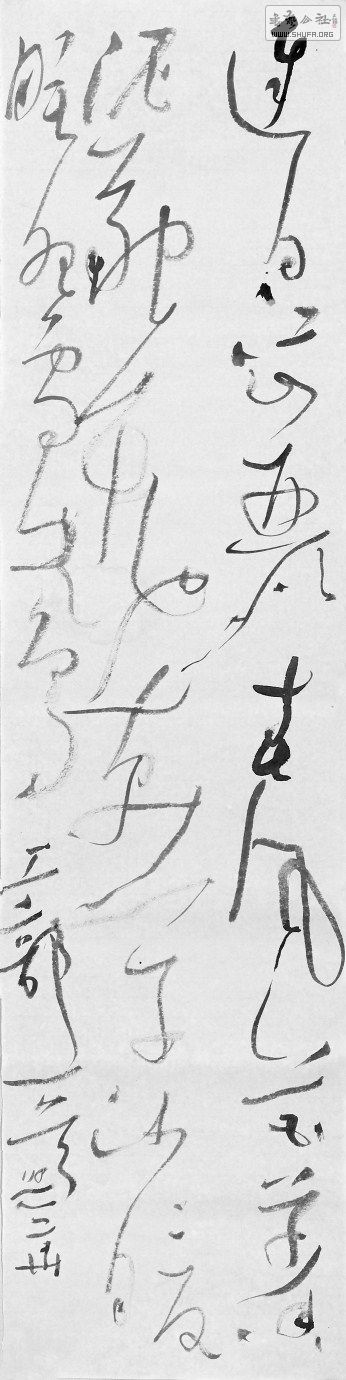 WWW.SHUFA.ORG
遲日江山麗春風花草香
泥融飛燕子沙暖
睡鴛鴦工部